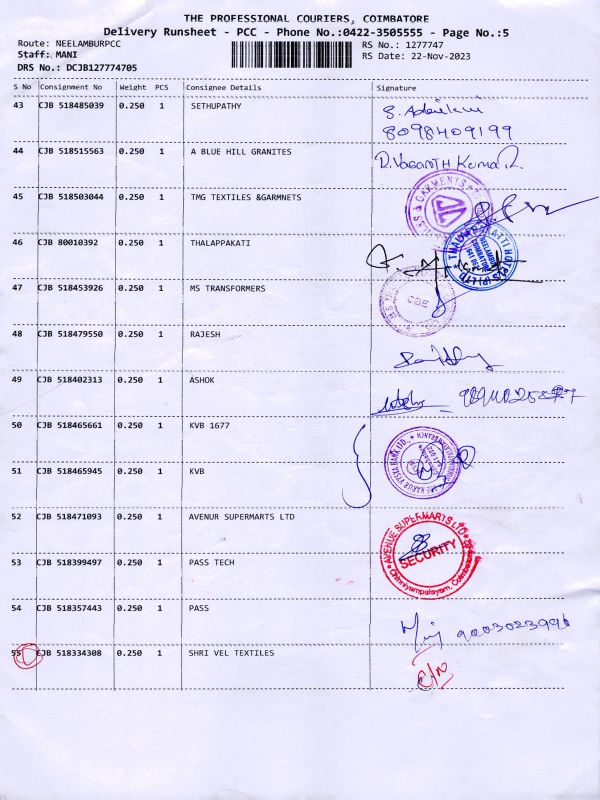 THE PROFESSIONAL COURIERS, COIMBATORE
Delivery Runsheet - PCC - Phone No.:0422-3505555 - Page No.:5
Route: NEELAMBURPCC RS No.: 1277747
Staff: MANI RS Date: 22-Nov-2023
DRS No.: DCJB127774705
S No Consignment No Weight PCS Consignee Details Signature
43 CJB 518485039 0.250 1 SETHUPATHY
8098409199
44 CJB 518515563 0.250 1 A BLUE HILL GRANITES D.VASANTH KUMAR.
45 CJB 518503044 0.250 1 TMG TEXTILES &GARMNETS
46 CJB 80010392 0.250 1 THALAPPAKATI
47 CJB 518453926 0.250 1 MS TRANSFORMERS
CBE
48 CJB 518479550 0.250 1 RAJESH
49 CJB 518402313 0.250 1 ASHOK
50 CJB 518465661 0.250 1 KVB 1677
51 CJB 518465945 0.250 1 KVB
52 CJB 518471093 0.250 1 AVENUR SUPERMARTS LTD
AVENUE SUPERMARTS LTD
SECURITY
53 CJB 518399497 0.250 1 PASS TECH
54 CJB 518357443 0.250 1 PASS
55 CJB 518334308 0.250 1 SHRI VEL TEXTILES